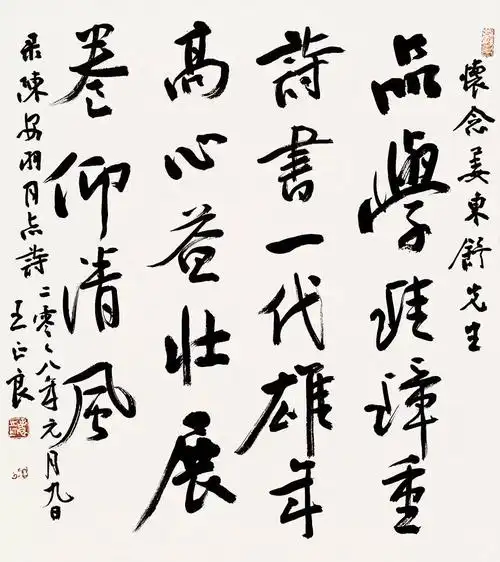 懷念姜東舒先生
品學珪璋重
詩書一代雄年
高心益壯展
卷仰清風
录陳安羽同志詩 二零〻八年元月九日
王正良